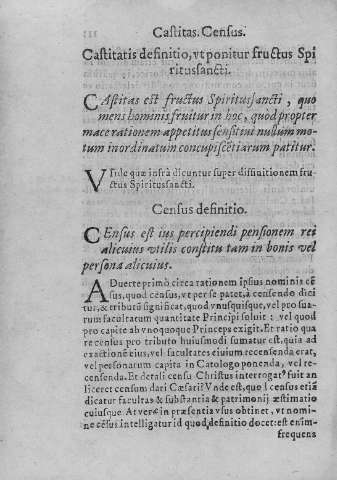 Castitas. Census.
Castitatis definitio, vt ponitur fructus Spi
ritussancti.
CAstitas est fructus Spiritussancti, quo
mens hominis fruitur in hoc, quod propter
mace rationem appetitus sensitiui nullum mo-
tum inordinatum concupiscẽtiarum patitur.
VIde quæ infrà dicuntur super diffinitionem fru
ctus Spiritussancti.
Census definitio.
CEnsus est ius percipiendi pensionem rei
alicuius vtilis constitu tam in bonis vel
persona alicuius.
ADuerte primò circa rationem ipsius nominis cẽ
sus, quod census, vt per se patet, à censendo dici
tur, & tributũ significat, quod vnusquisque, vel pro sua-
rum facultatum quantitate Principi soluit: vel quod
pro capite ab vnoquoque Princeps exigit. Et ratio qua
re census pro tributo huiusmodi sumatur est, quia ad
exactionẽ eius, vel facultates ciuium recensenda erat,
vel personarum capita in Catologo ponenda, vel re-
censenda. Et de tali censu Christus interrogatꝰ fuit an
liceret censum dari Cæsari? Vnde est, quod census etiã
dicatur facultas & substantia & patrimonij æstimatio
cuiusque. At verò in præsentia vsus obtinet, vt nomi-
ne cẽsus intelligatur id quod definitio docet: est enim
frequens